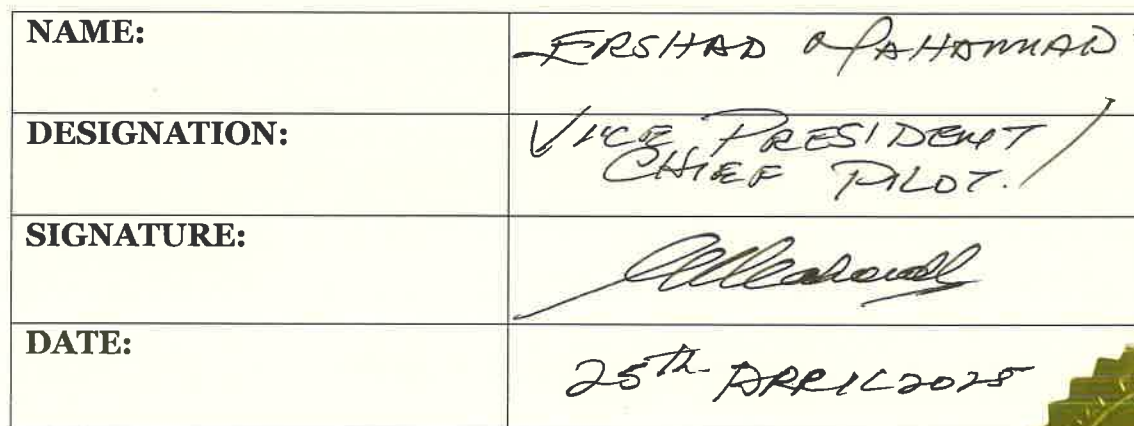 NAME: ERSHAD MAHAMMAD
DESIGNATION: VICE PRESIDENT /
CHIEF PILOT.
SIGNATURE:
DATE: 25th APRIL 2025